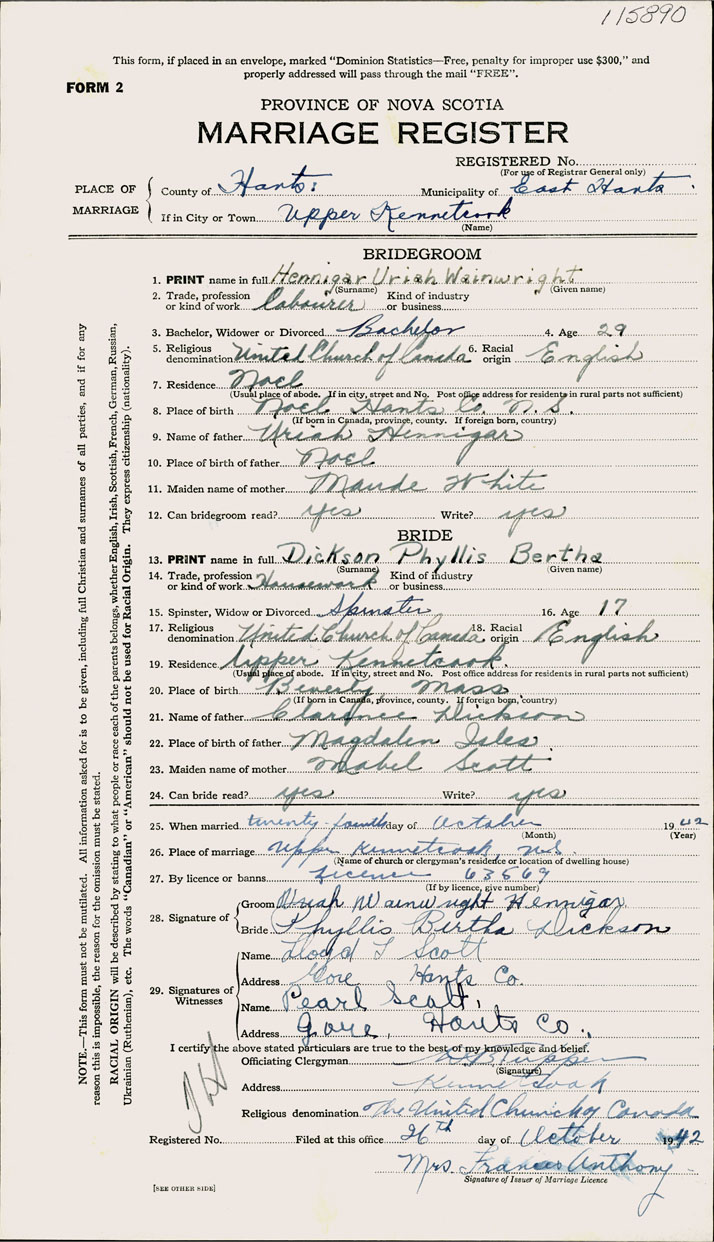 115890
This form, if placed in an envelope, marked “Dominion Statistics—Free, penalty for improper use $300,” and
properly addressed will pass through the mail “FREE”.
FORM 2
PROVINCE OF NOVA SCOTIA
MARRIAGE REGISTER
REGISTERED No.
(For use of Registrar General only)
PLACE OF MARRIAGE
County of Hants: Municipality of East Hants.
If in City or Town Upper Kennetcook
(Name)
BRIDEGROOM
1. PRINT name in full Hennigar Uriah Wainwright
(Surname) (Given name)
2. Trade, profession or kind of work Labourer Kind of industry or business
3. Bachelor, Widower or Divorced Bachelor 4. Age 29
5. Religious denomination United Church of Canada 6. Racial origin English
7. Residence Noel
(Usual place of abode. If in city, street and No. Post office address for residents in rural parts not sufficient)
8. Place of birth Noel Hants Co. N.S.
(If born in Canada, province, county. If foreign born, country)
9. Name of father Uriah Hennigar
10. Place of birth of father Noel
11. Maiden name of mother Maude White
12. Can bridegroom read? yes Write? yes
BRIDE
13. PRINT name in full Dickson Phyllis Bertha
(Surname) (Given name)
14. Trade, profession or kind of work Housework Kind of industry or business
15. Spinster, Widow or Divorced Spinster 16. Age 17
17. Religious denomination United Church of Canada 18. Racial origin English
19. Residence Upper Kennetcook.
(Usual place of abode. If in city, street and No. Post office address for residents in rural parts not sufficient)
20. Place of birth Beverly, Mass
(If born in Canada, province, county. If foreign born, country)
21. Name of father Clarence Dickson
22. Place of birth of father Magdalen Isles.
23. Maiden name of mother Mabel Scott
24. Can bride read? yes Write? yes
25. When married twenty-fourth day of October 1942
(Month) (Year)
26. Place of marriage Upper Kennetcook, N.S.
(Name of church or clergyman's residence or location of dwelling house)
27. By licence or banns Licence 63569
(If by licence, give number)
28. Signature of
Groom Uriah Wainwright Hennigar
Bride Phyllis Bertha Dickson
29. Signatures of Witnesses
Name Lloyd T Scott
Address Gore Hants Co.
Name Pearl Scott,
Address Gore, Hants Co.,
I certify the above stated particulars are true to the best of my knowledge and belief.
Officiating Clergyman Tupper
(Signature)
Address Kennetcook
Religious denomination The United Church of Canada
Registered No. Filed at this office 26th day of October 1942
Mrs. Frances Anthony
Signature of Issuer of Marriage Licence
[SEE OTHER SIDE]
NOTE.—This form must not be mutilated. All information asked for is to be given, including full Christian and surnames of all parties, and if for any
reason this is impossible, the reason for the omission must be stated.
RACIAL ORIGIN will be described by stating to what people or race each of the parents belongs, whether English, Irish, Scottish, French, German, Russian,
Ukrainian (Ruthenian), etc. The words “Canadian” or “American” should not be used for Racial Origin. They express citizenship (nationality).